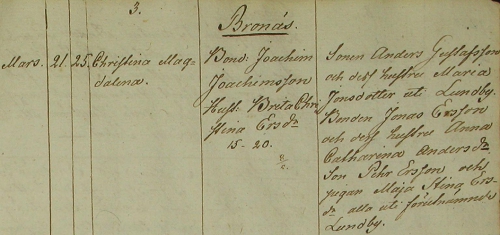 3.
Bronäs.
Mars. 21. 25. Christina Mag-
dalena.
Bond: Joachim
Joachimsson
Hust. Breta Chri
stina Ersdr
15-20.
Sonen Anders Gustafsson
och dess hustru Maria
Jonsdotter uti Lundby.
Bonden Jonas Ersson
och dess hustru Anna
Catharina Andersdr
Son Pehr Ersson och
pigan Maja Stina Ers-
dr alla uti förutnämnde
Lundby.